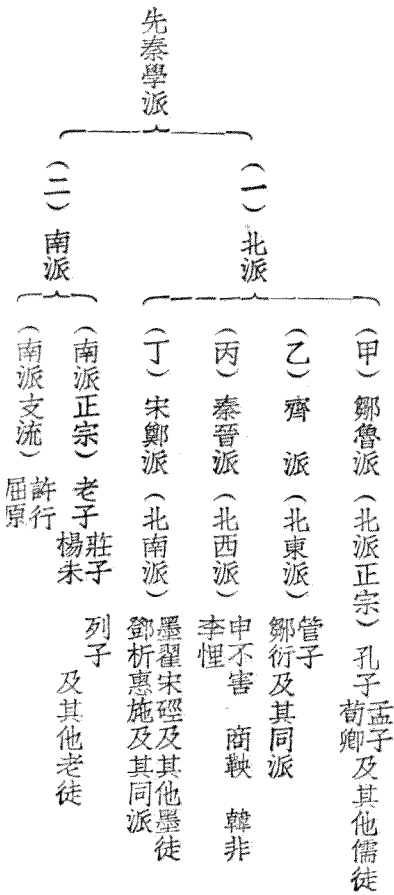 先秦學派
（一）北派
（甲）鄒魯派（北派正宗）孔子 孟子 荀卿 及其他儒徒
（乙）齊　派（北東派）管子
鄒衍及其同派
（丙）秦晉派（北西派）申不害　商鞅　韓非
李悝
（丁）宋鄭派（北南派）墨翟宋硜及其他墨徒
鄧析惠施及其同派
（二）南派
（南派正宗）老子 莊子 列子 楊朱 及其他老徒
（南派支流）許行
屈原